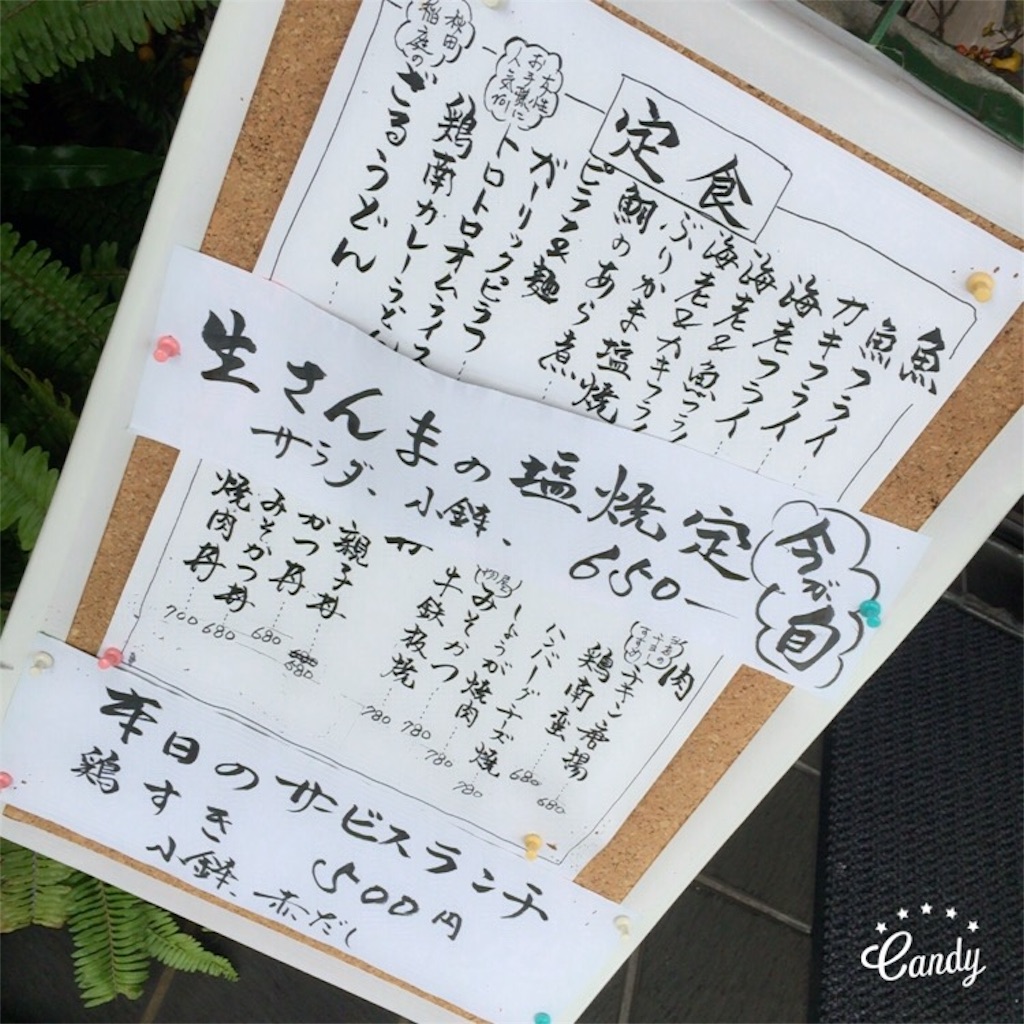 定食
魚
魚
カキフライ
海老フライ
海老と魚フライ
海老とカキフライ
ぶりかま塩焼
鯛のあら煮
ピラフと麺
ガーリックピラフ
女性お子様に人気No1
トロトロオムライス
鶏南カレーうどん
秋田稲庭の
ざるうどん
生さんまの塩焼定
サラダ、小鉢、
650ー
今が旬
肉
チキン唐揚 680
鶏南蛮 680
ハンバーグチーズ焼 780
しょうが焼肉 780
みそかつ 780
牛鉄板焼 780
親子丼 680
かつ丼 680
みそかつ丼 680
焼肉丼 700
本日のサービスランチ
鶏すき 500円
小鉢、赤だし
Candy